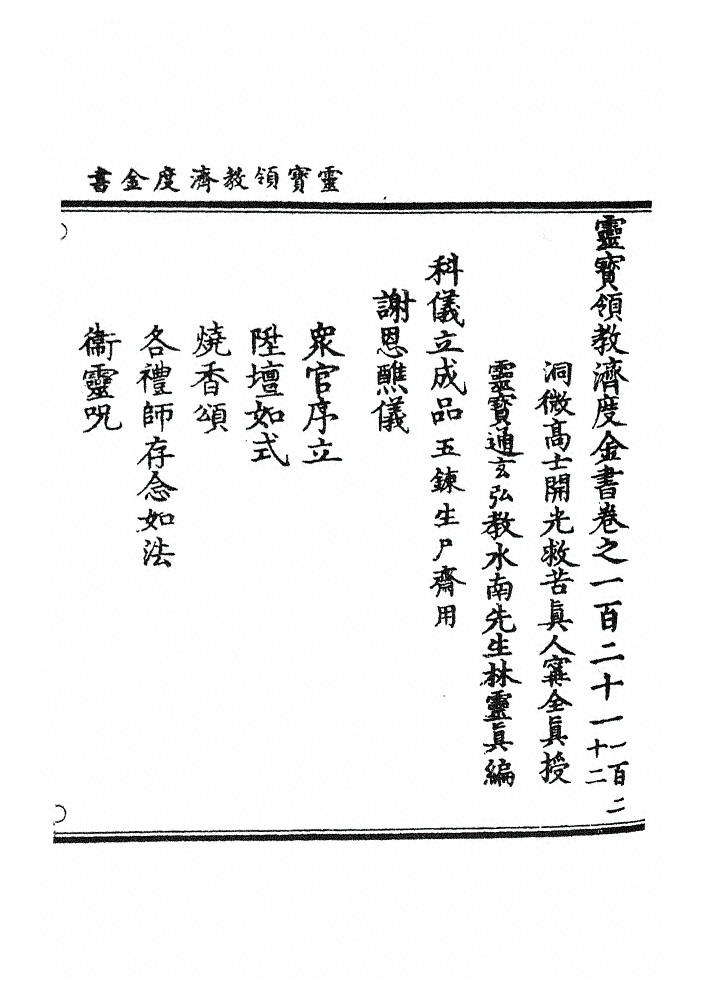 靈寶領教濟度金書
靈寶領教濟度金書卷之一百二十一
一百二
十二
洞微高士開光救苦眞人甯全眞授
靈寶通玄弘教水南先生林靈眞編
科儀立成品五鍊生尸齋用
謝恩醮儀
衆官序立
陞壇如式
燒香頌
各禮師存念如法
衞靈呪